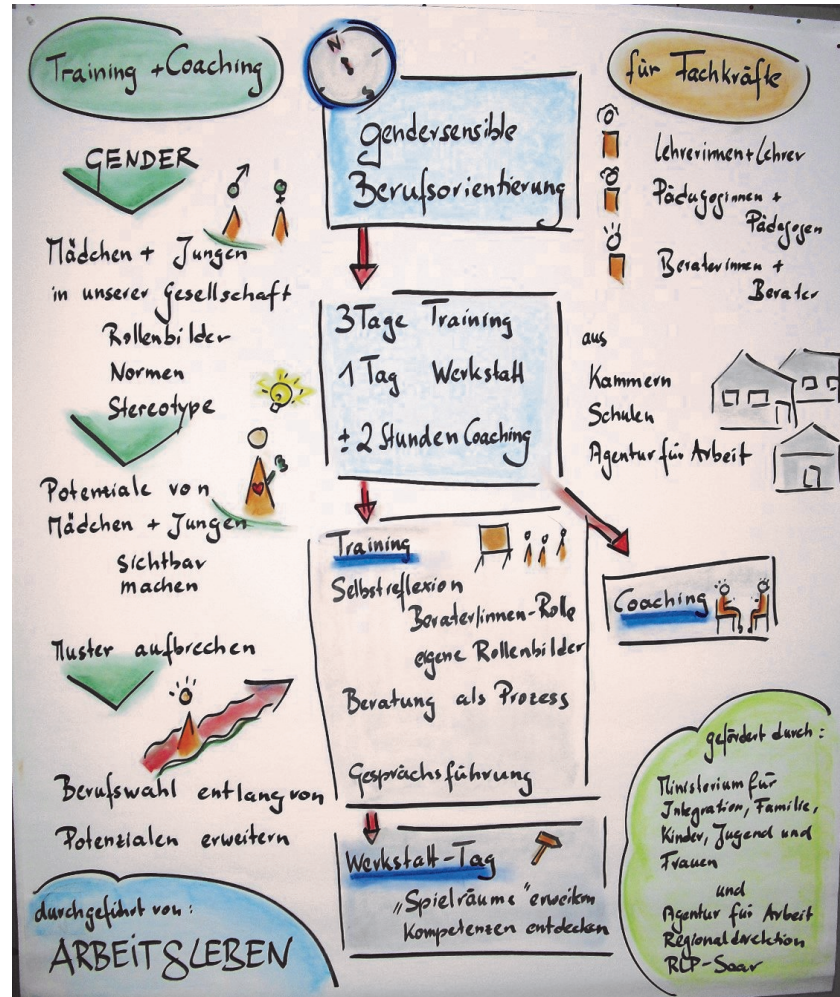 Training + Coaching
GENDER
Mädchen + Jungen
in unserer Gesellschaft
Rollenbilder
Normen
Stereotype
Potenziale von
Mädchen + Jungen
sichtbar
machen
Muster aufbrechen
Berufswahl entlang von
Potenzialen erweitern
durchgeführt von:
ARBEIT & LEBEN
N
S
gendersensible
Berufsorientierung
3 Tage Training
1 Tag Werkstatt
± 2 Stunden Coaching
Training
Selbstreflexion
Berater/innen-Rolle
eigene Rollenbilder
Beratung als Prozess
Gesprächsführung
Werkstatt-Tag
„Spielräume" erweitern
Kompetenzen entdecken
für Fachkräfte
Lehrerinnen + Lehrer
Pädagoginnen +
Pädagogen
Beraterinnen +
Berater
aus
Kammern
Schulen
Agentur für Arbeit
Coaching
gefördert durch:
Ministerium für
Integration, Familie,
Kinder, Jugend und
Frauen
und
Agentur für Arbeit
Regionaldirektion
RLP-Saar